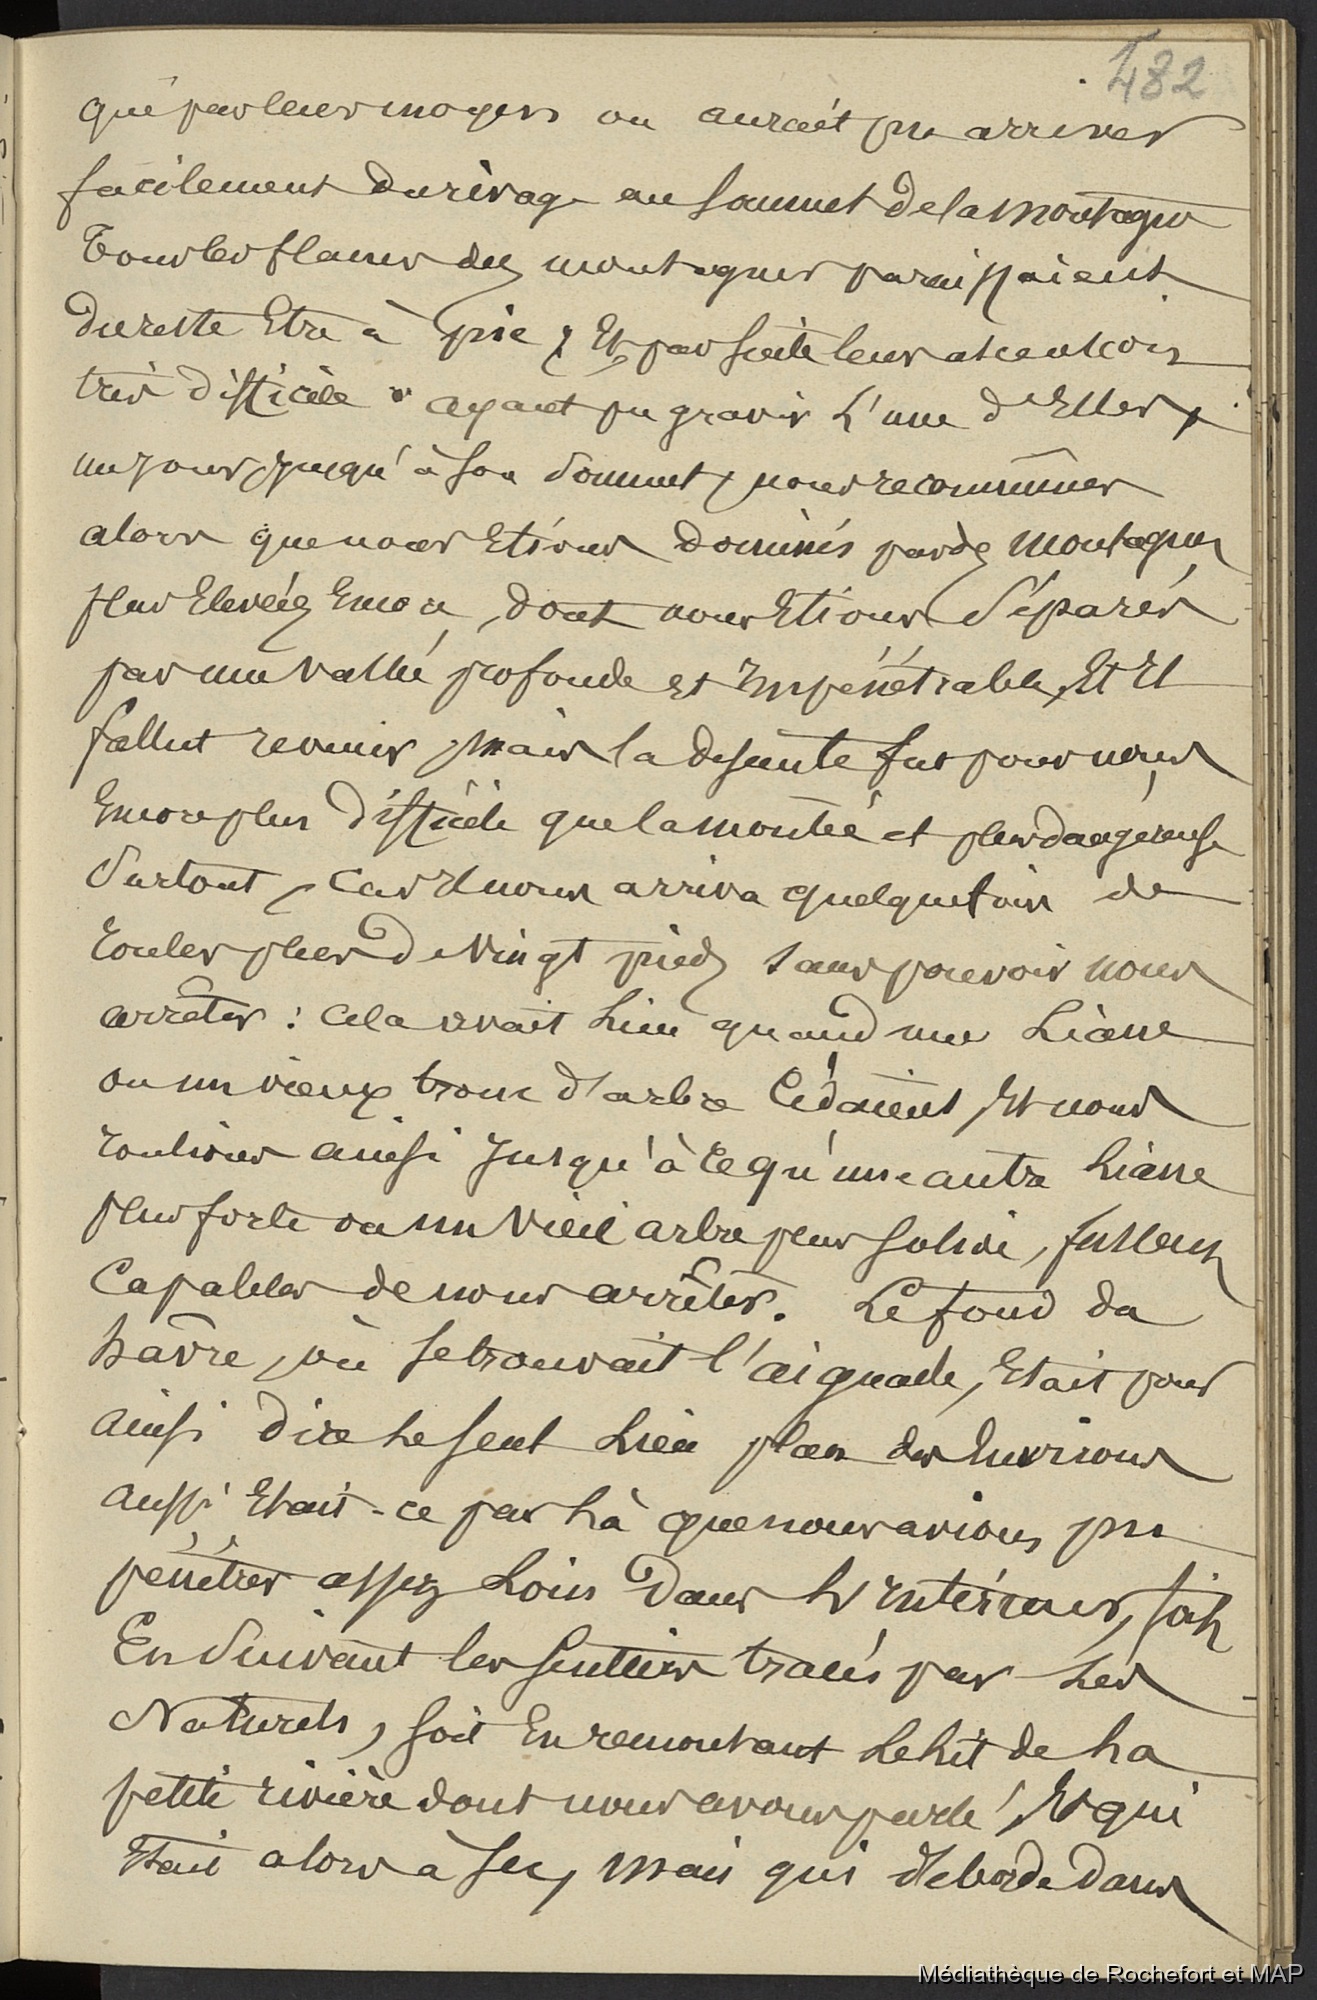 482
que par leur moyen on aurait pu arriver
facilement du rivage au sommet de la montagne
Tous les flancs des montagnes paraissaient
du reste Etre à pic, Et par suite leur ascension
très difficile. ayant pu gravir L'une d'Elles,
un jour, jusqu'à son sommet, nous reconnûmes
alors que nous Etions dominés par des montagnes
plus Elevées Encore, dont nous Etions séparés
par une vallée profonde et Impénétrable, Et Il
fallut revenir, mais la descente fut pour nous
Encore plus difficile que la montée et plus dangéreuse
Surtout, car Il nous arriva quelquefois de
rouler plus de vingt pieds sans pouvoir nous
arrêter : cela avait Lieu quand une Liane
ou un vieux tronc d'arbre Cédaient, Et nous
roulions ainsi Jusqu'à ce qu'une autre Liane
plus forte ou un vieil arbre plus solide, fussent
Capables de nous arrêter. Le fond du
hâvre, où se trouvait l'aiguade, Etait pour
ainsi dire Le seul Lieu plan des Environs
aussi Etait-ce par Là que nous avions pu
pénétrer assez Loin dans L'Intérieur, soit
En Suivant les sentiers tracés par Les
Naturels, soit En remontant Le Lit de La
petite rivière dont nous avons parlé, Et qui
Etait alors à sec, mais qui déborde dans
Médiathèque de Rochefort et MAP